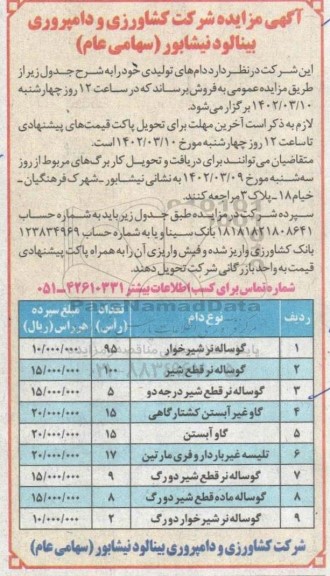 آگهی مزایده شرکت کشاورزی و دامپروری
بینالود نیشابور (سهامی عام)
این شرکت در نظر دارد دام‌های تولیدی خود را به شرح جدول زیر از
طریق مزایده عمومی به فروش برساند که در ساعت ۱۲ روز چهارشنبه
۱۴۰۲/۰۳/۱۰ برگزار می‌شود.
لازم به ذکر است آخرین مهلت برای تحویل پاکت قیمت‌های پیشنهادی
تا ساعت ۱۲ روز چهارشنبه مورخ ۱۴۰۲/۰۳/۱۰ است.
متقاضیان می‌توانند برای دریافت و تحویل کاربرگ‌های مربوط از روز
سه‌شنبه مورخ ۱۴۰۲/۰۳/۰۹ به نشانی نیشابور - شهرک فرهنگیان -
خیام ۱۸ - پلاک ۳ مراجعه کنند.
سپرده شرکت در مزایده طبق جدول زیر باید به شماره حساب
۱۸۱۸۱۸۲۱۸۰۸۶۴۱ بانک سینا و یا به شماره حساب ۱۲۳۸۳۴۹۶۹
بانک کشاورزی واریز شده و فیش واریزی آن را به همراه پاکت پیشنهادی
قیمت به واحد بازرگانی شرکت تحویل دهند.
شماره تماس برای کسب اطلاعات بیشتر ۴۲۶۱۰۳۳۱-۰۵۱
ردیف نوع دام تعداد (رأس) مبلغ سپرده هر راس (ریال)
۱ گوساله نر شیرخوار ۹۵ ۱۰/۰۰۰/۰۰۰
۲ گوساله نر قطع شیر ۱۰۰ ۱۵/۰۰۰/۰۰۰
۳ گوساله نر قطع شیر درجه دو ۵ ۱۵/۰۰۰/۰۰۰
۴ گاو غیر آبستن کشتارگاهی ۱۵ ۲۰/۰۰۰/۰۰۰
۵ گاو آبستن ۱۵ ۲۰/۰۰۰/۰۰۰
۶ تلیسه غیر باردار و فری مارتین ۱۷ ۲۰/۰۰۰/۰۰۰
۷ گوساله نر قطع شیر دورگ ۹ ۱۵/۰۰۰/۰۰۰
۸ گوساله ماده قطع شیر دورگ ۸ ۱۵/۰۰۰/۰۰۰
۹ گوساله نر شیرخوار دورگ ۲ ۱۰/۰۰۰/۰۰۰
شرکت کشاورزی و دامپروری بینالود نیشابور (سهامی عام)